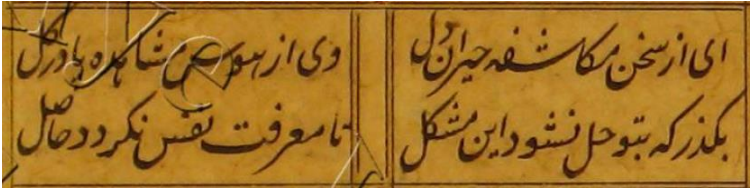 ای از سخن مکاشفه حیران دل
وی از هوس مشاهده پا در کل
بکذر که بتو حل نشود این مشکل
تا معرفت نفس نکردد حاصل